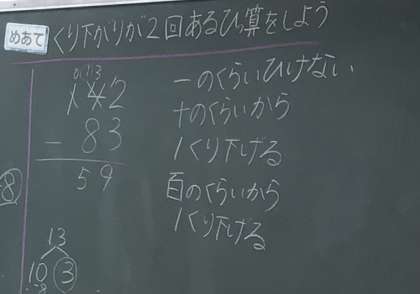 めあて くり下がりが2回あるひっ算をしよう
0 13
142
- 83
59
一のくらいひけない
十のくらいから
1くり下げる
百のくらいから
1くり下げる
8
13
10 3